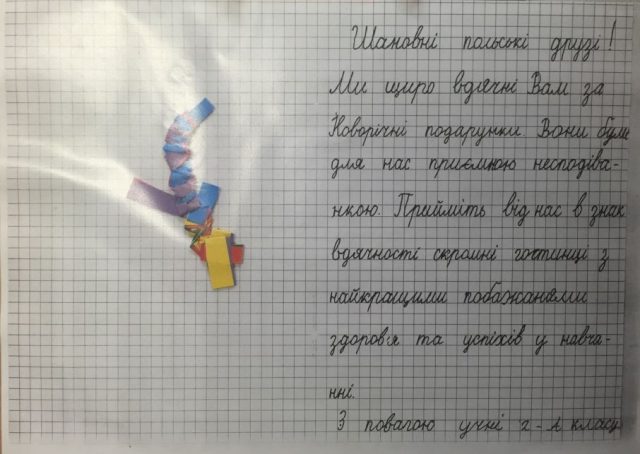 Шановні польські друзі!
Ми щиро вдячні Вам за
Новорічні подарунки. Вони були
для нас приємною несподіва-
нкою. Прийміть від нас в знак
вдячності скромні гостинці з
найкращими побажанями
здоров'я та успіхів у навча-
нні.
З повагою учні 2-А класу